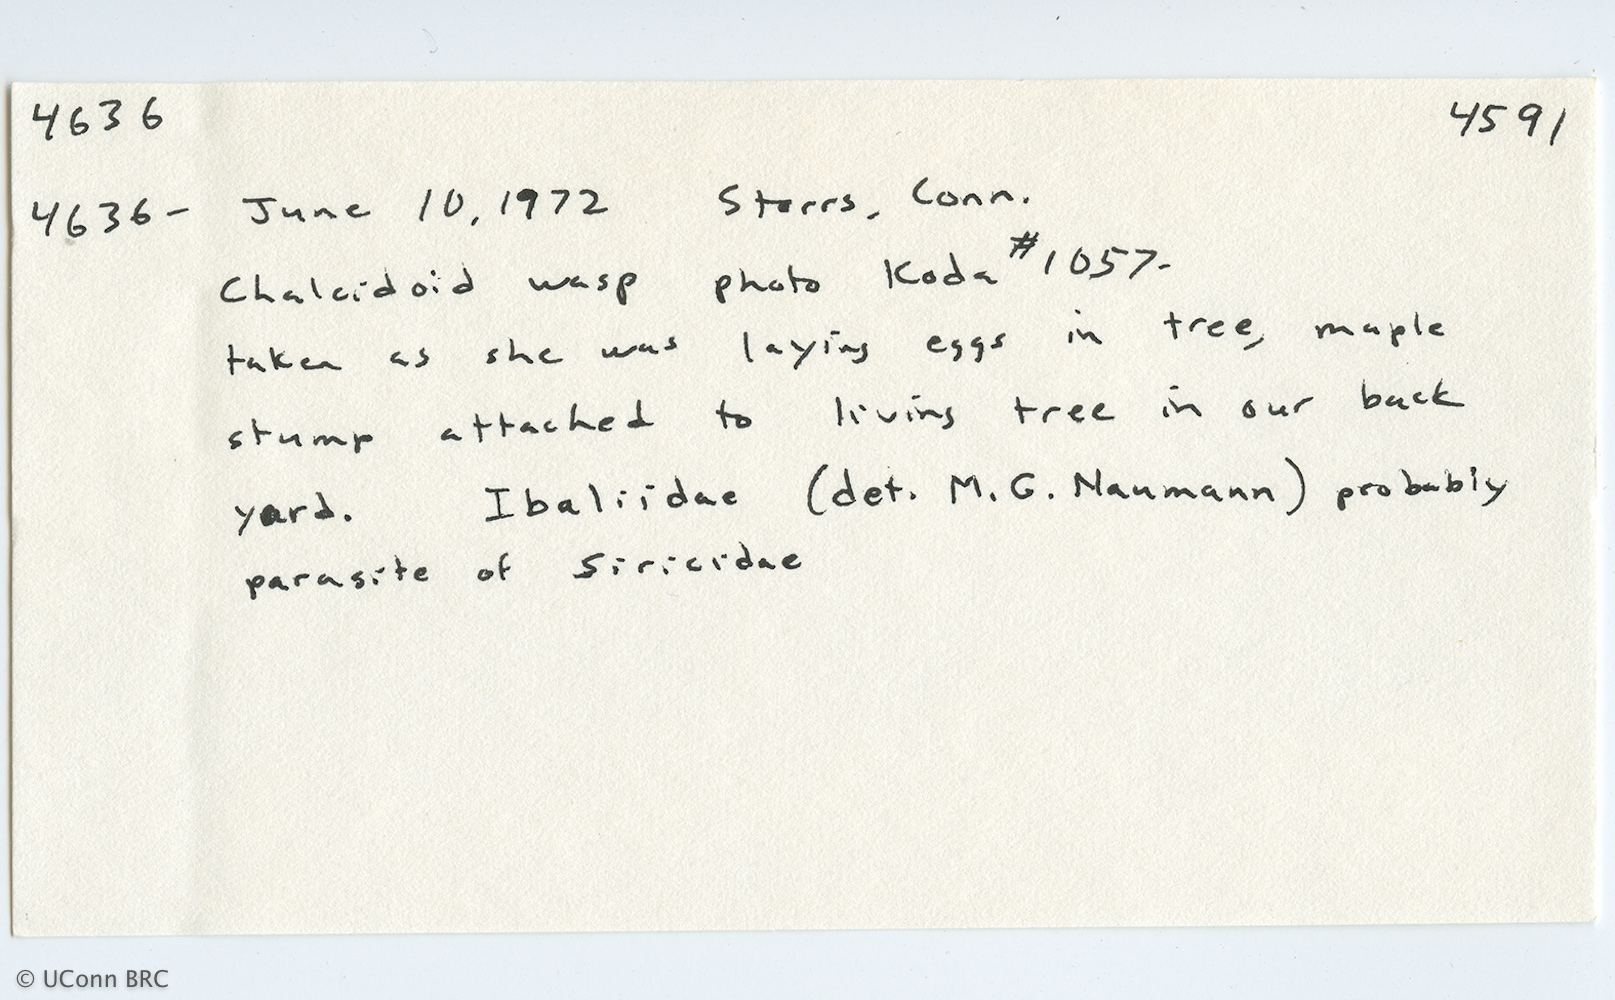 4636 4591
4636- June 10, 1972 Storrs, Conn.
Chalcidoid wasp photo Koda #1057-
taken as she was laying eggs in tree, maple
stump attached to living tree in our back
yard. Ibaliidae (det. M. G. Naumann) probably
parasite of Siricidae
© UConn BRC